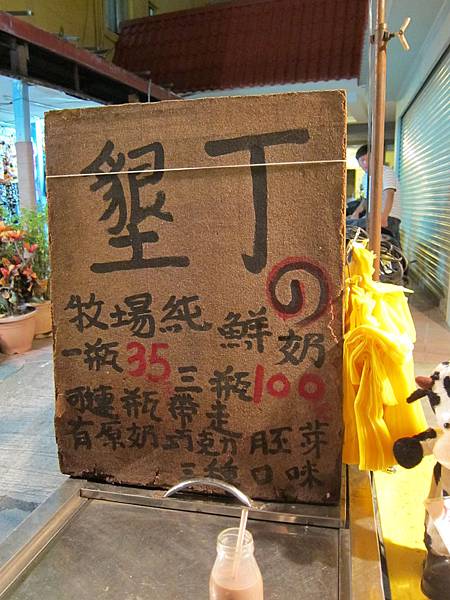 墾丁の
牧場純鮮奶
一瓶35 三瓶100
可連瓶帶走
有原奶巧克力胚芽
三種口味